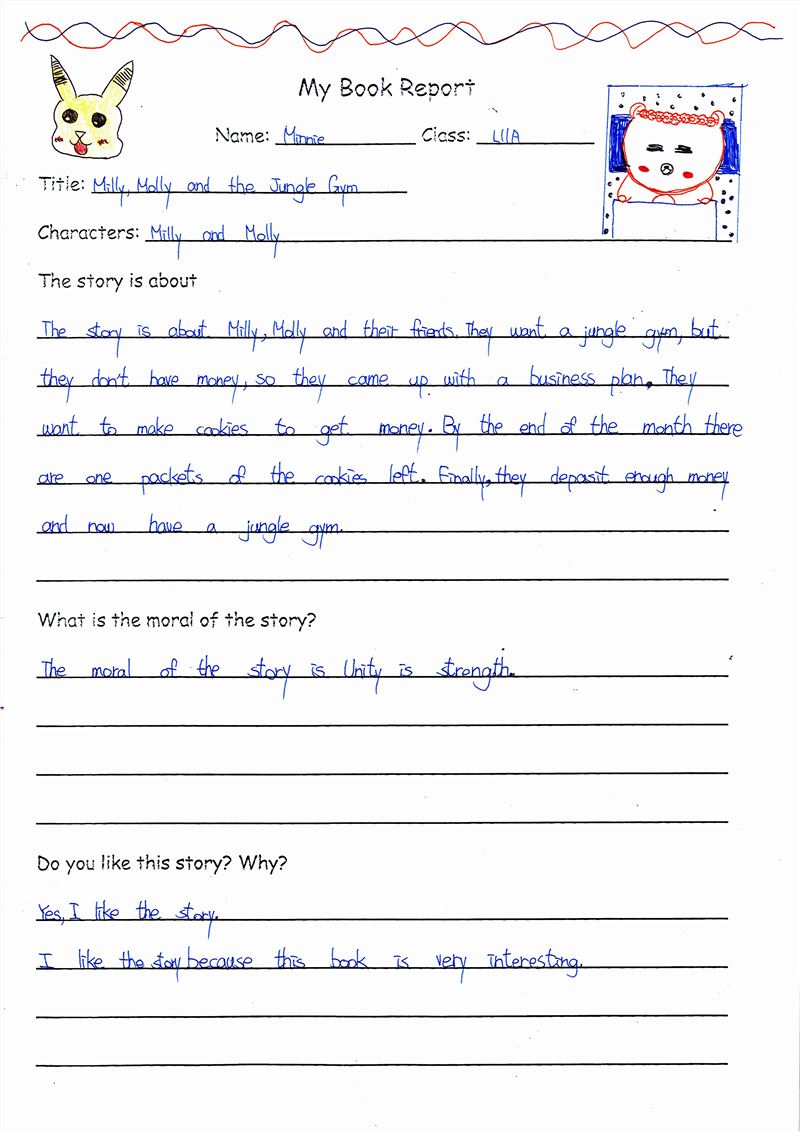 My Book Report
Name: Minnie Class: L11A
Title: Milly, Molly and the Jungle Gym
Characters: Milly and Molly
The story is about
The story is about Milly, Molly and their friends. They want a jungle gym, but
they don't have money, so they came up with a business plan. They
want to make cookies to get money. By the end of the month there
are one packets of the cookies left. Finally, they deposit enough money
and now have a jungle gym.
What is the moral of the story?
The moral of the story is Unity is strength.
Do you like this story? Why?
Yes, I like the story.
I like the story because this book is very interesting.